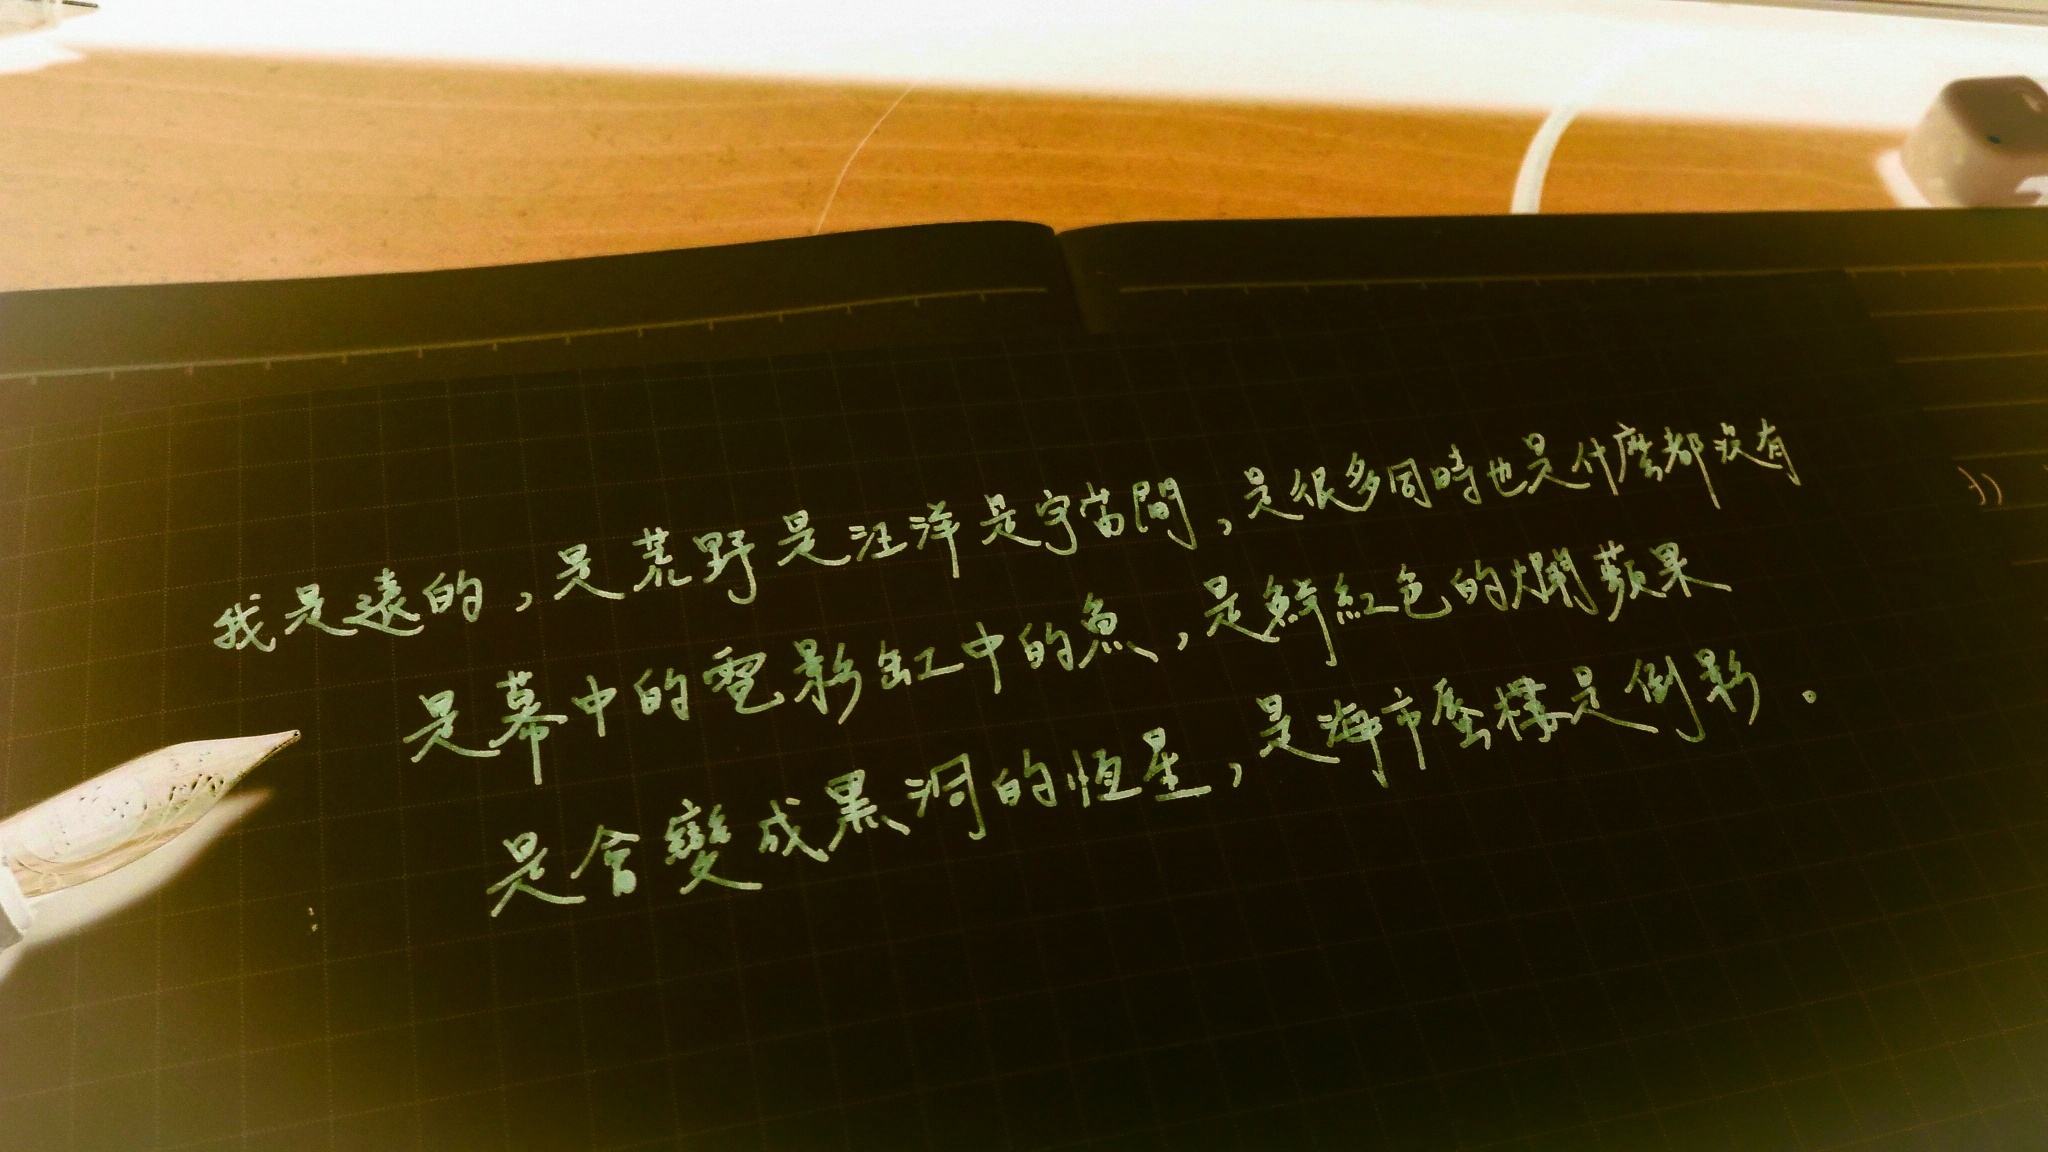 我是遠的，是荒野是汪洋是宇宙間，是很多同時也是什麼都沒有
是幕中的電影缸中的魚，是鮮紅色的爛蘋果
是會變成黑洞的恆星，是海市蜃樓是倒影。